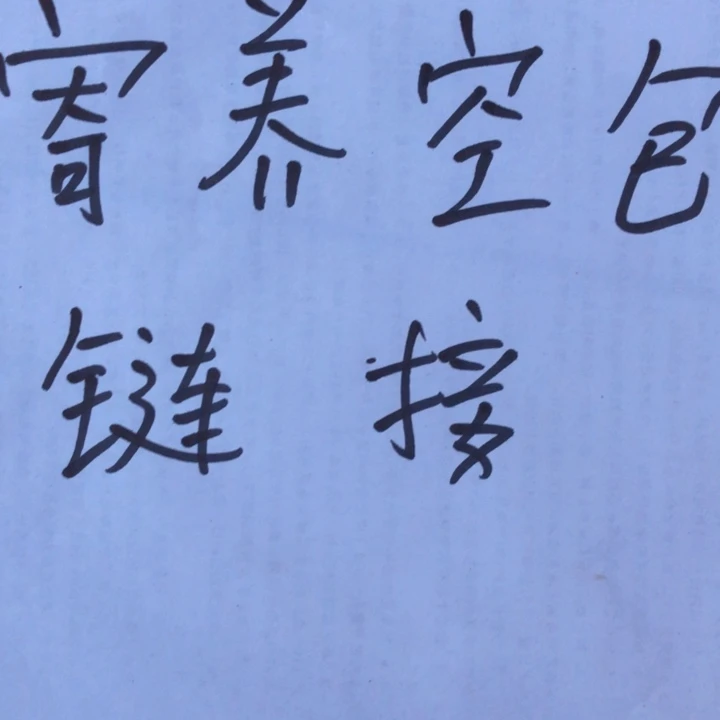 寄养空包
链接